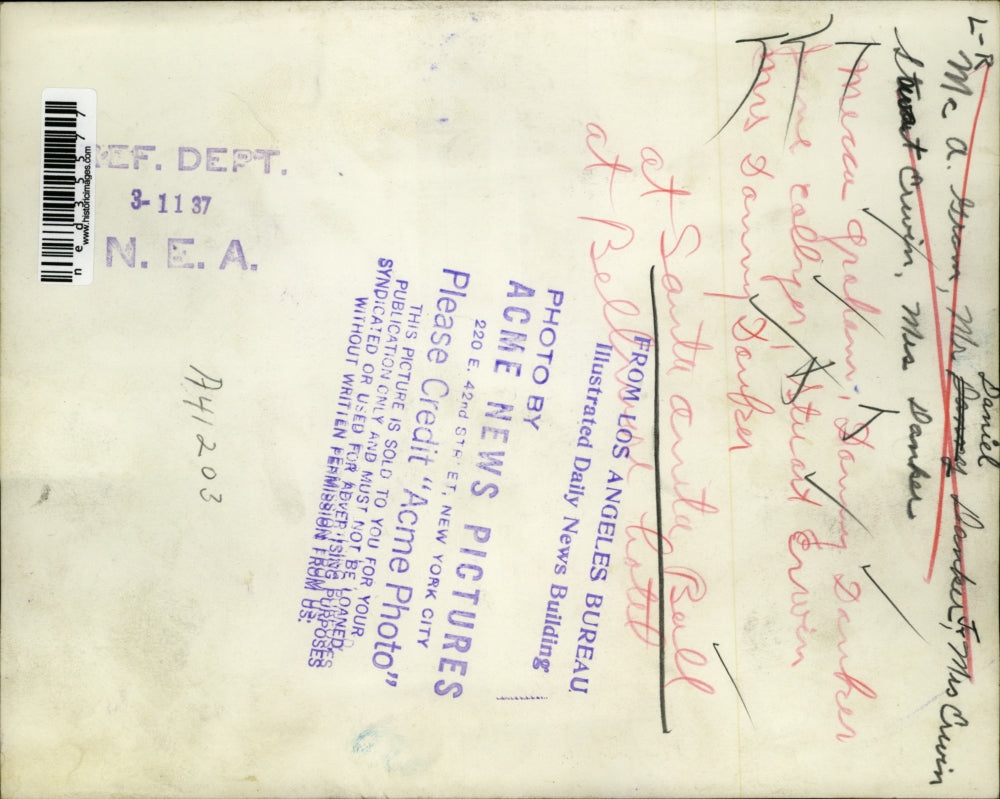 L-R
Mc A. Groom, Mr Daniel Danker, Mrs Erwin
Stuart Erwin, Mrs Danker
Graham, Danny Danker
June collyer, Stuart Erwin
Mrs Danny Danker
at Santa anita Ball
at Hotel
FROM LOS ANGELES BUREAU
Illustrated Daily News Building
PHOTO BY
ACME NEWS PICTURES
220 E. 42nd STREET, NEW YORK CITY
Please Credit "Acme Photo"
THIS PICTURE IS SOLD TO YOU FOR YOUR
PUBLICATION ONLY AND MUST NOT BE LOANED
SYNDICATED OR USED FOR ADVERTISING PURPOSES
WITHOUT WRITTEN PERMISSION FROM US.
A41203
REF. DEPT.
3-11 37
N. E. A.
www.historicimages.com